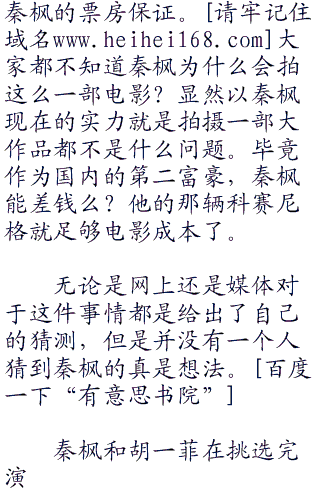 秦枫的票房保证。[请牢记住
域名www.heihei168.com]大
家都不知道秦枫为什么会拍
这么一部电影？显然以秦枫
现在的实力就是拍摄一部大
作品都不是什么问题。毕竟
作为国内的第二富豪，秦枫
能差钱么？他的那辆科赛尼
格就足够电影成本了。
无论是网上还是媒体对
于这件事情都是给出了自己
的猜测，但是并没有一个人
猜到秦枫的真是想法。[百度
一下“有意思书院”]
秦枫和胡一菲在挑选完
演